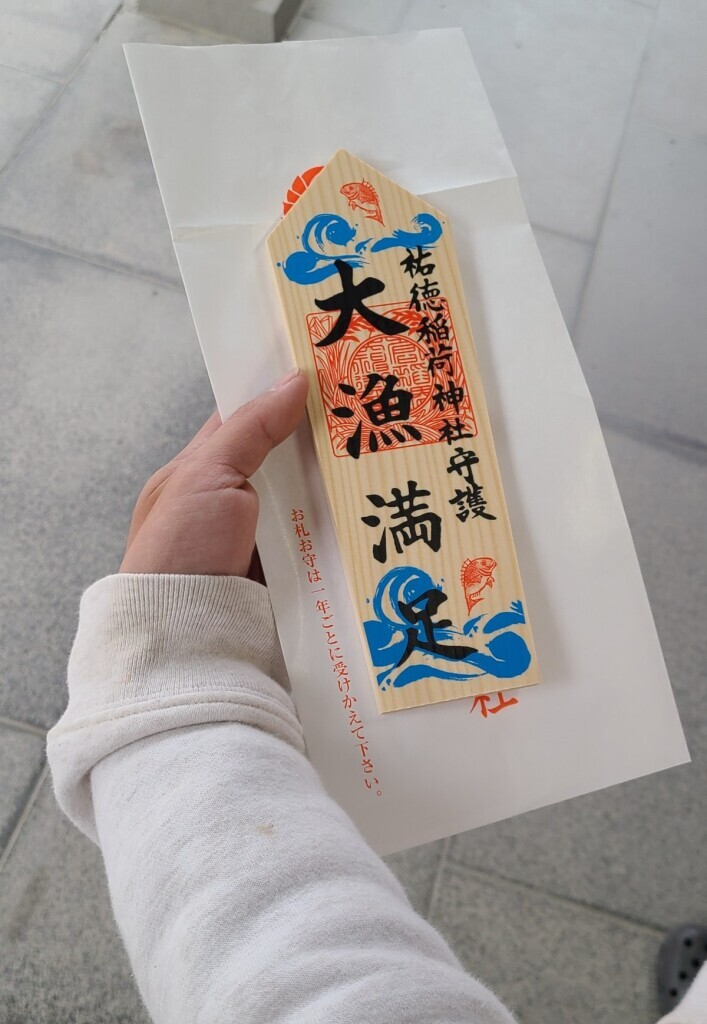 祐徳稲荷神社守護
大漁満足
お札お守は一年ごとに受けかえて下さい。
社